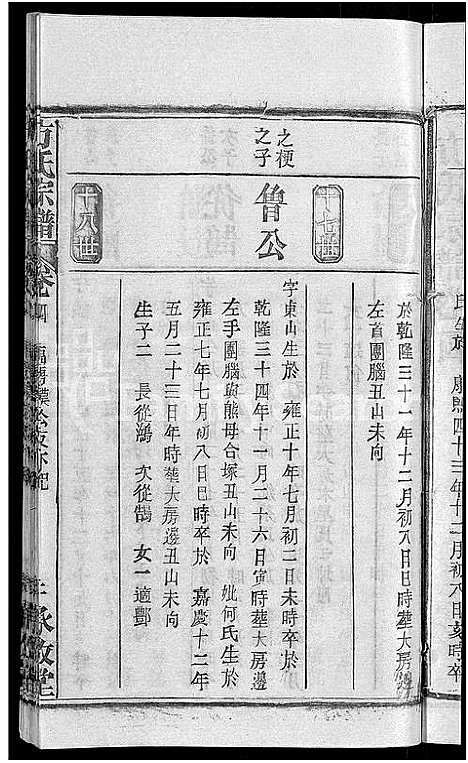 氏生於 康熙四十三年十二月初八日亥時卒
十七世
於乾隆三十一年十二月初八日巳時葬大房邊
左首團腦丑山未向
之梗之子
魯公
字東山生於 雍正十年七月初二日未時卒於
乾隆三十四年十一月二十六日寅時葬大房邊
左手團腦與熊母合塚丑山未向 妣何氏生於
雍正七年七月初八日巳時卒於 嘉慶十二年
五月二十三日年時葬大房邊丑山未向
生子二 長從鵷 次從鵠 女一適鄧
十八世
方氏宗譜
卷四
敬堂